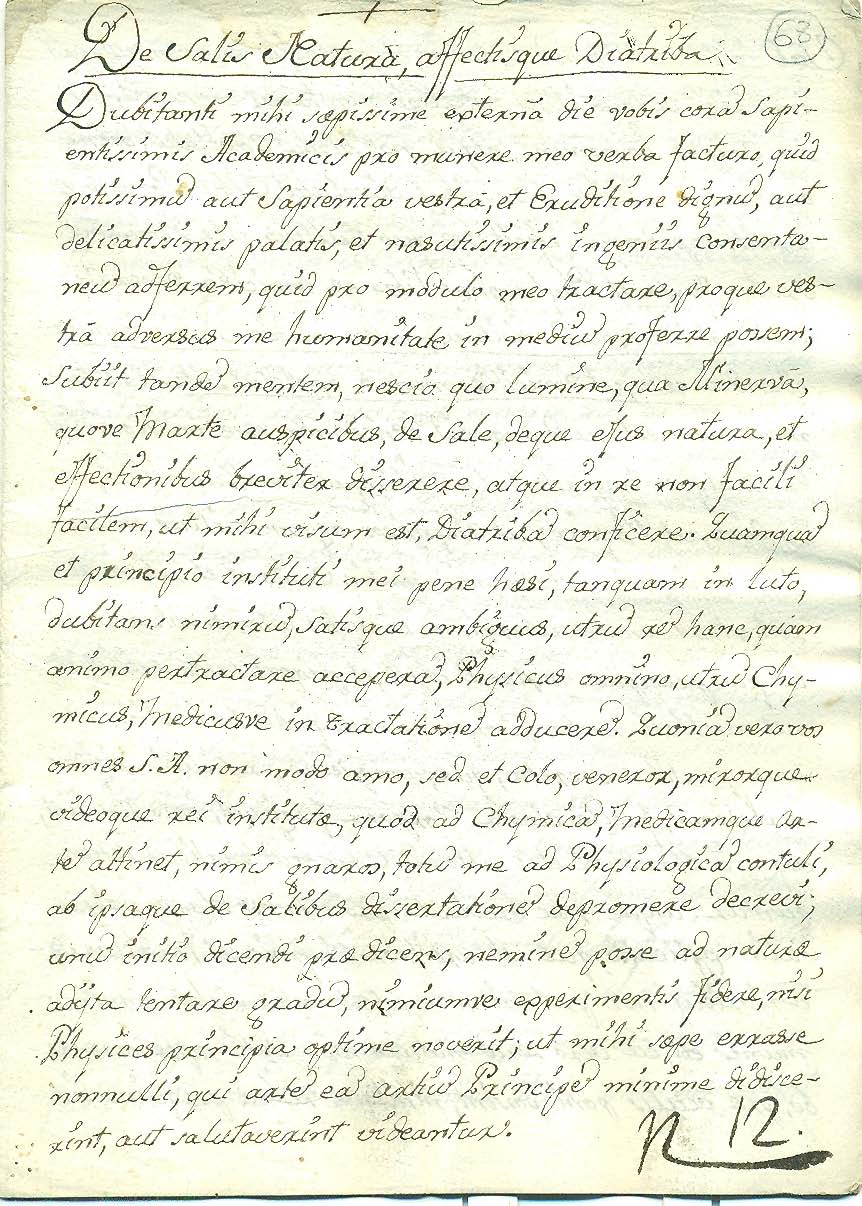 68
De Salis Naturâ, affectisque Diatriba.
Dubitanti mihi sæpissime externâ die vobis corã Sapi-
entissimis Academicis pro munere meo verba facturo, quid
potissimũ aut Sapientia vestrâ, et Eruditione dignũ, aut
delicatissimis palatis, et nasutissimis ingeniis consenta-
neũ adferrem, quid pro modulo meo tractare, proque ves-
trâ adversus me humanitate in mediũ proferre possem;
Subiit tandẽ mentem, nescio quo lumine, qua Minervâ,
quove Marte auspicibus, de Sale, deque ejus natura, et
effectionibus breviter disserere, atque in re non facili
facilem, ut mihi visum est, Diatribã conficere. Quamquã
et principio instituti mei pene hæsi, tanquam in luto,
dubitans nimirũ, satisque ambiguus, utrũ rẽ hanc, quam
animo pertractare acceperã, Physicus omnino, utrũ Chy-
micus, Medicusve in tractationẽ adducerẽ. Quoniã vero vos
omnes S. A. non modo amo, sed et colo, veneror, mirorque
videoque rei institutæ, quod ad Chymicã, Medicamque ar-
tẽ attinet, nimis gnaros, totũ me ad Physiologicã contuli,
ab ipsaque de Salibus dissertationẽ depromere decrevi;
unũ initio dicendi prædicens, neminẽ posse ad naturæ
adyta tentare gradũ, nimiumve experimentis fidere, nisi
Physices principia optime noverit; ut mihi sæpe errasse
nonnulli, qui artẽ eã artiũ Principẽ minime didice-
rint, aut salutaverint videantur.
N 12.